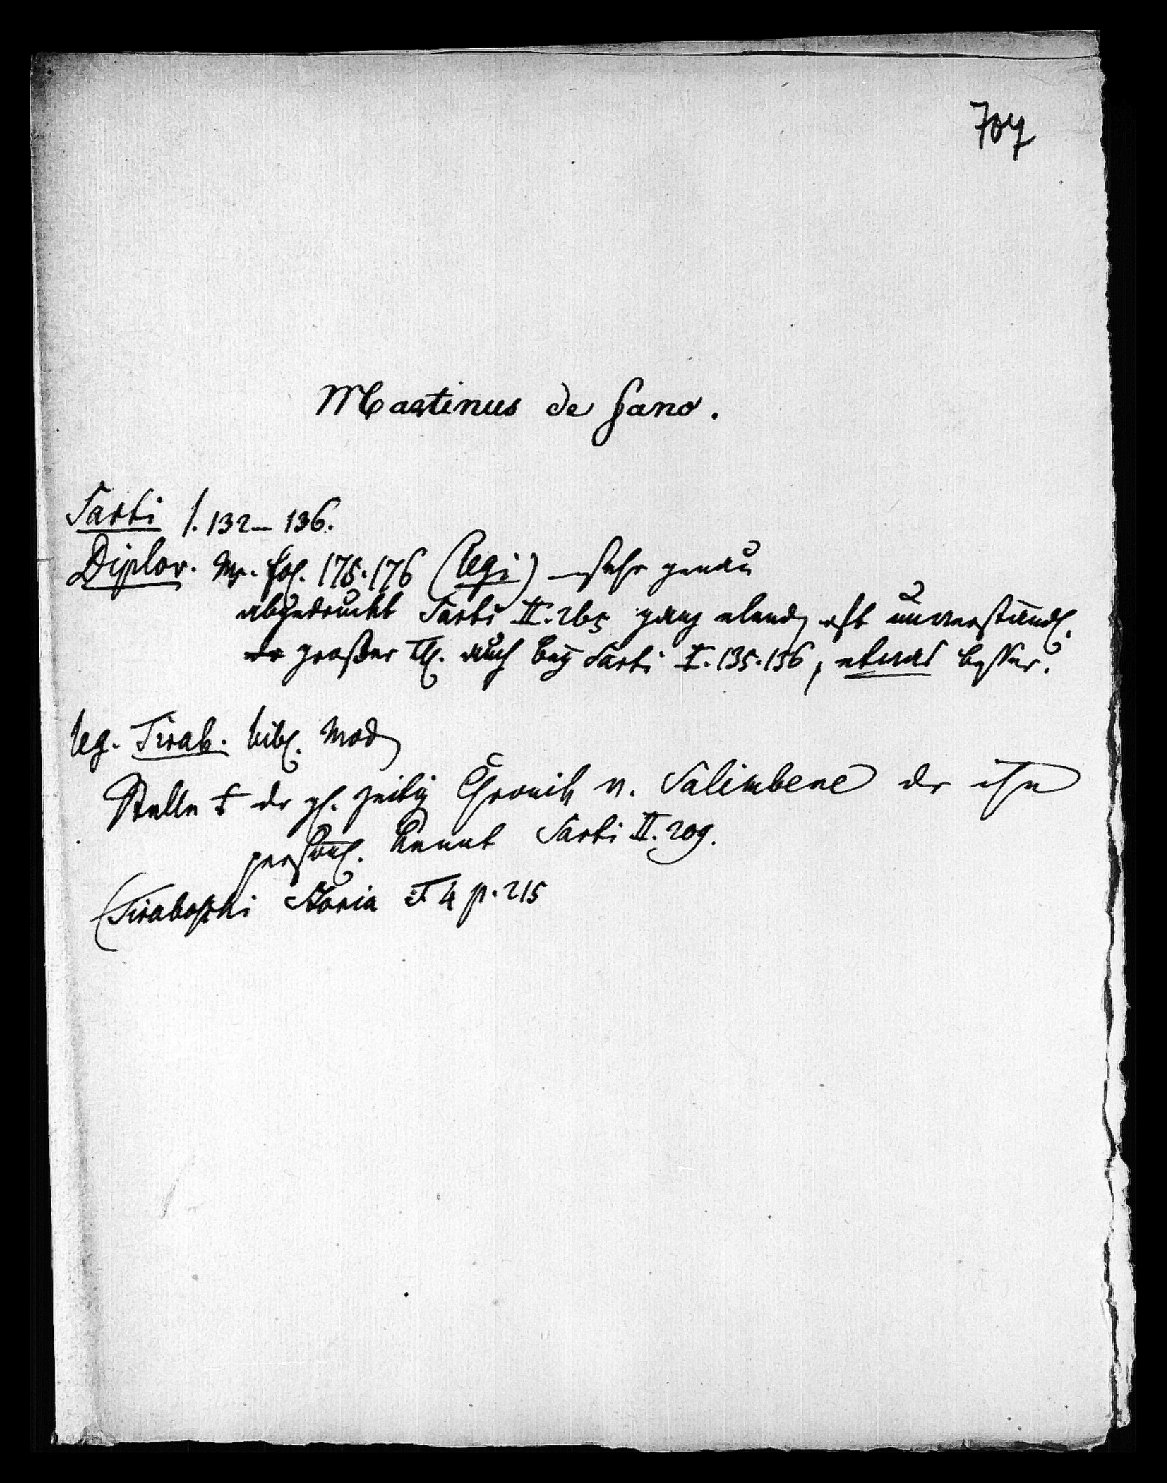 707
Martinus de Fano.
Sarti I. 132 – 136.
Diplov. Mſ. fol. 175. 176 (legi) – sehr genau
abgedruckt Sarti II. 265 ganz elend, oft unverständl.
großer Th. auch bey Sarti I. 135. 136, etwas besser.
leg. Tirab. bibl. mod
Stelle der gl. zeitig Chronik v. Salimbene der ihn
persönl. kennt Sarti II. 209.
(Tiraboschi Storia T 4 p. 215